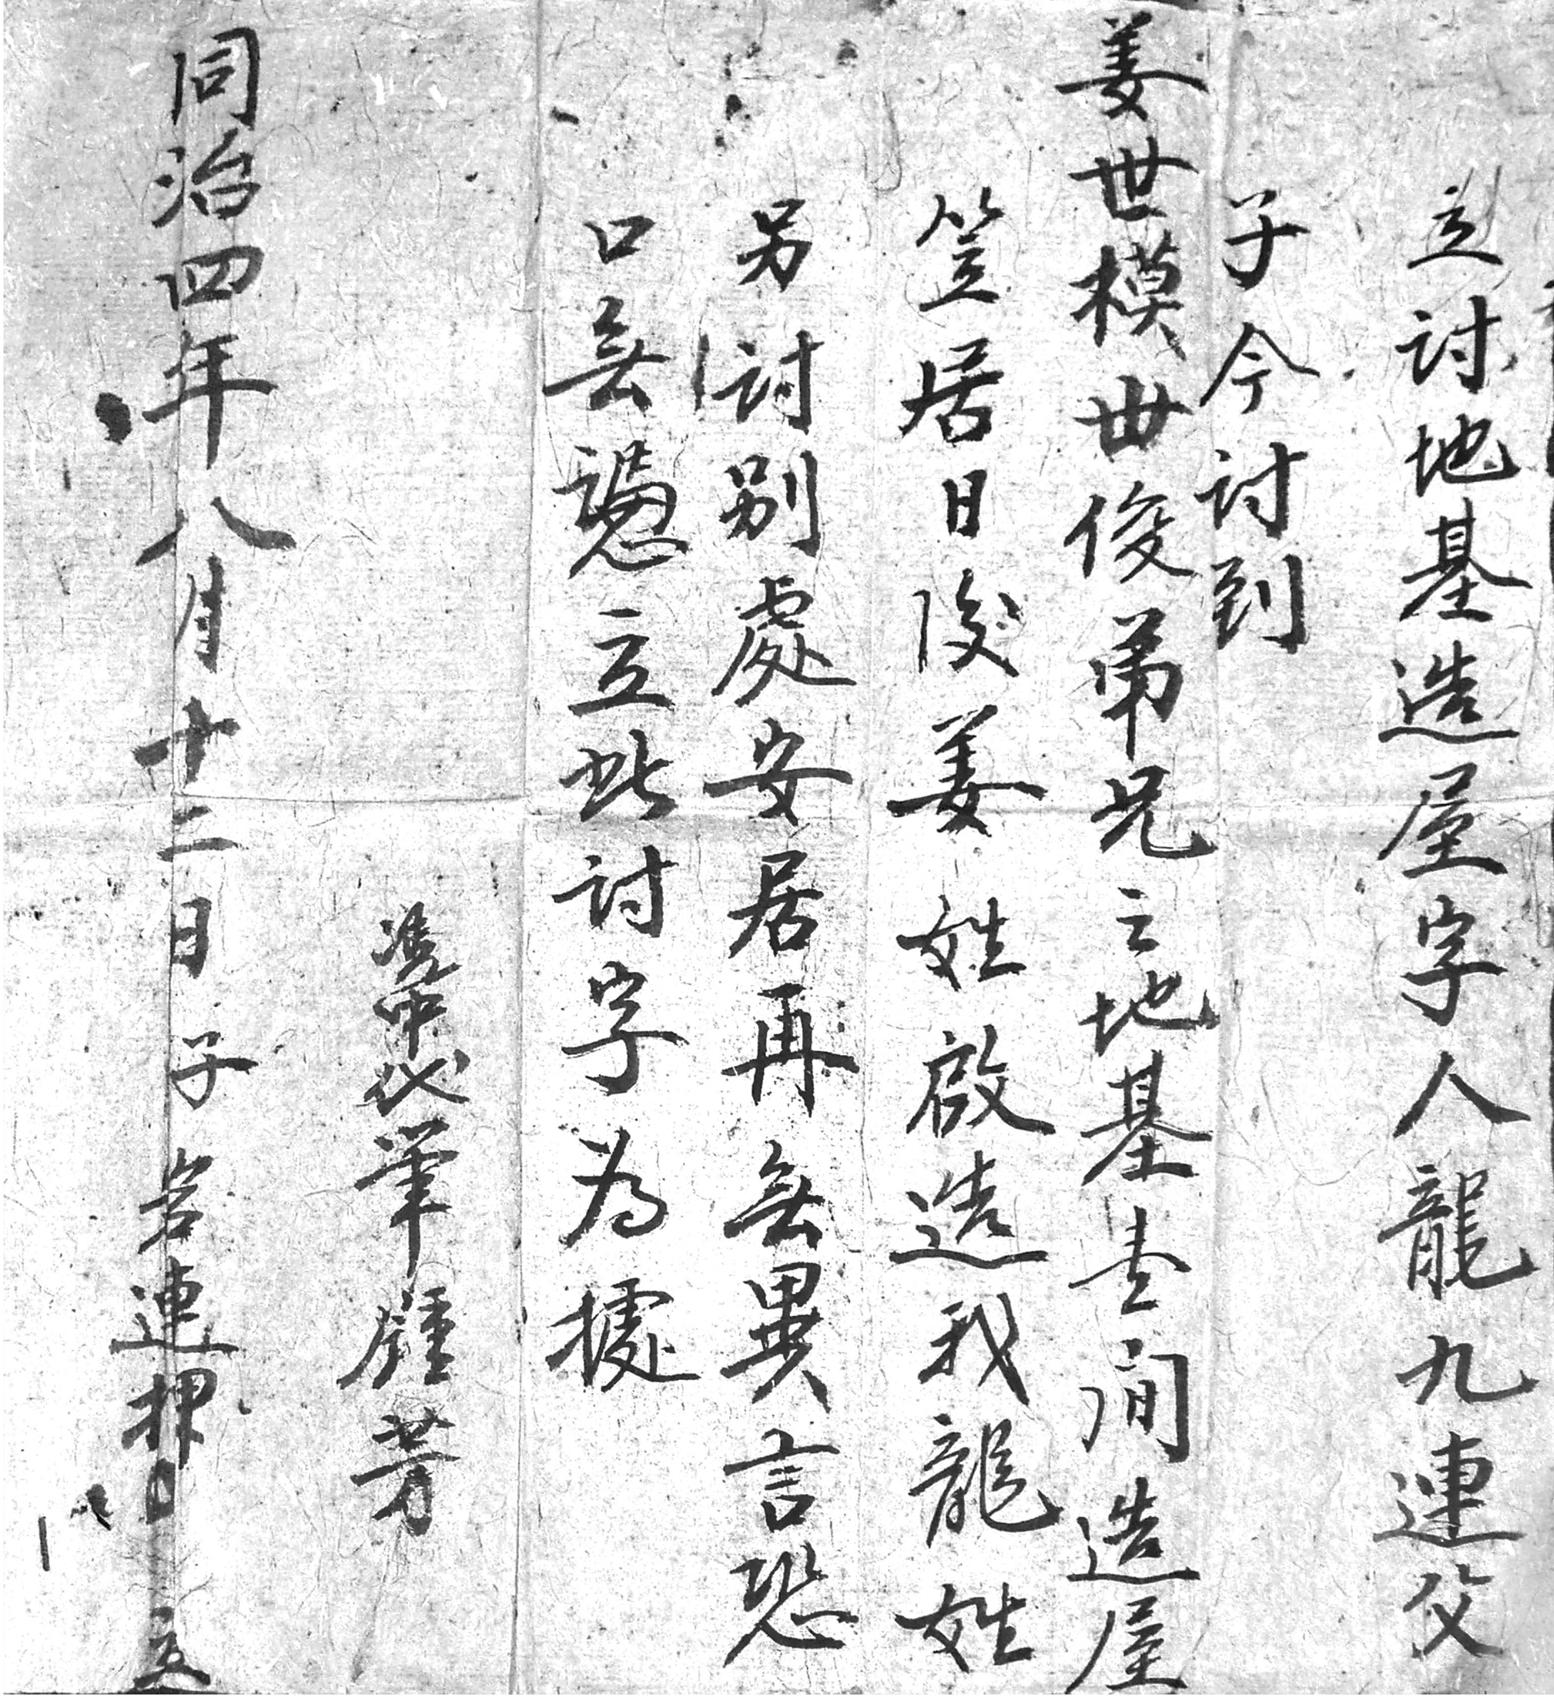 立討地基造屋字人龍九連父
子今討到
姜世模世俊弟兄之地基壹间造屋
笠居日後姜姓啟造我龍姓
另討别處安居再無異言恐
口無憑立此討字為據
憑中代筆鍾芳
同治四年八月十二日子名連押立